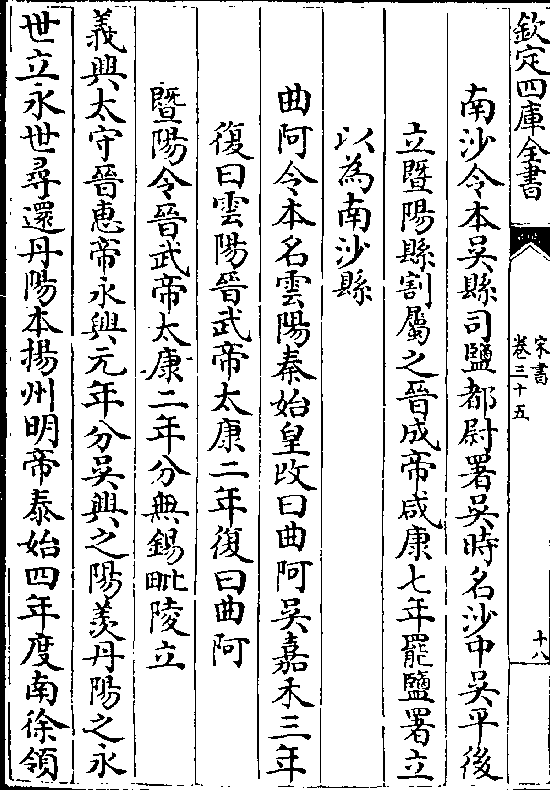 欽定四庫全書
宋書
卷三十五
十八
南沙令本吳縣司鹽都尉署吳時名沙中吳平後
立暨陽縣割屬之晉成帝咸康七年罷鹽署立
以為南沙縣
曲阿令本名雲陽秦始皇改曰曲阿吳嘉禾三年
復曰雲陽晉武帝太康二年復曰曲阿
暨陽令晉武帝太康二年分無錫毗陵立
義興太守晉惠帝永興元年分吳興之陽羨丹陽之永
世立永世尋還丹陽本揚州明帝泰始四年度南徐領